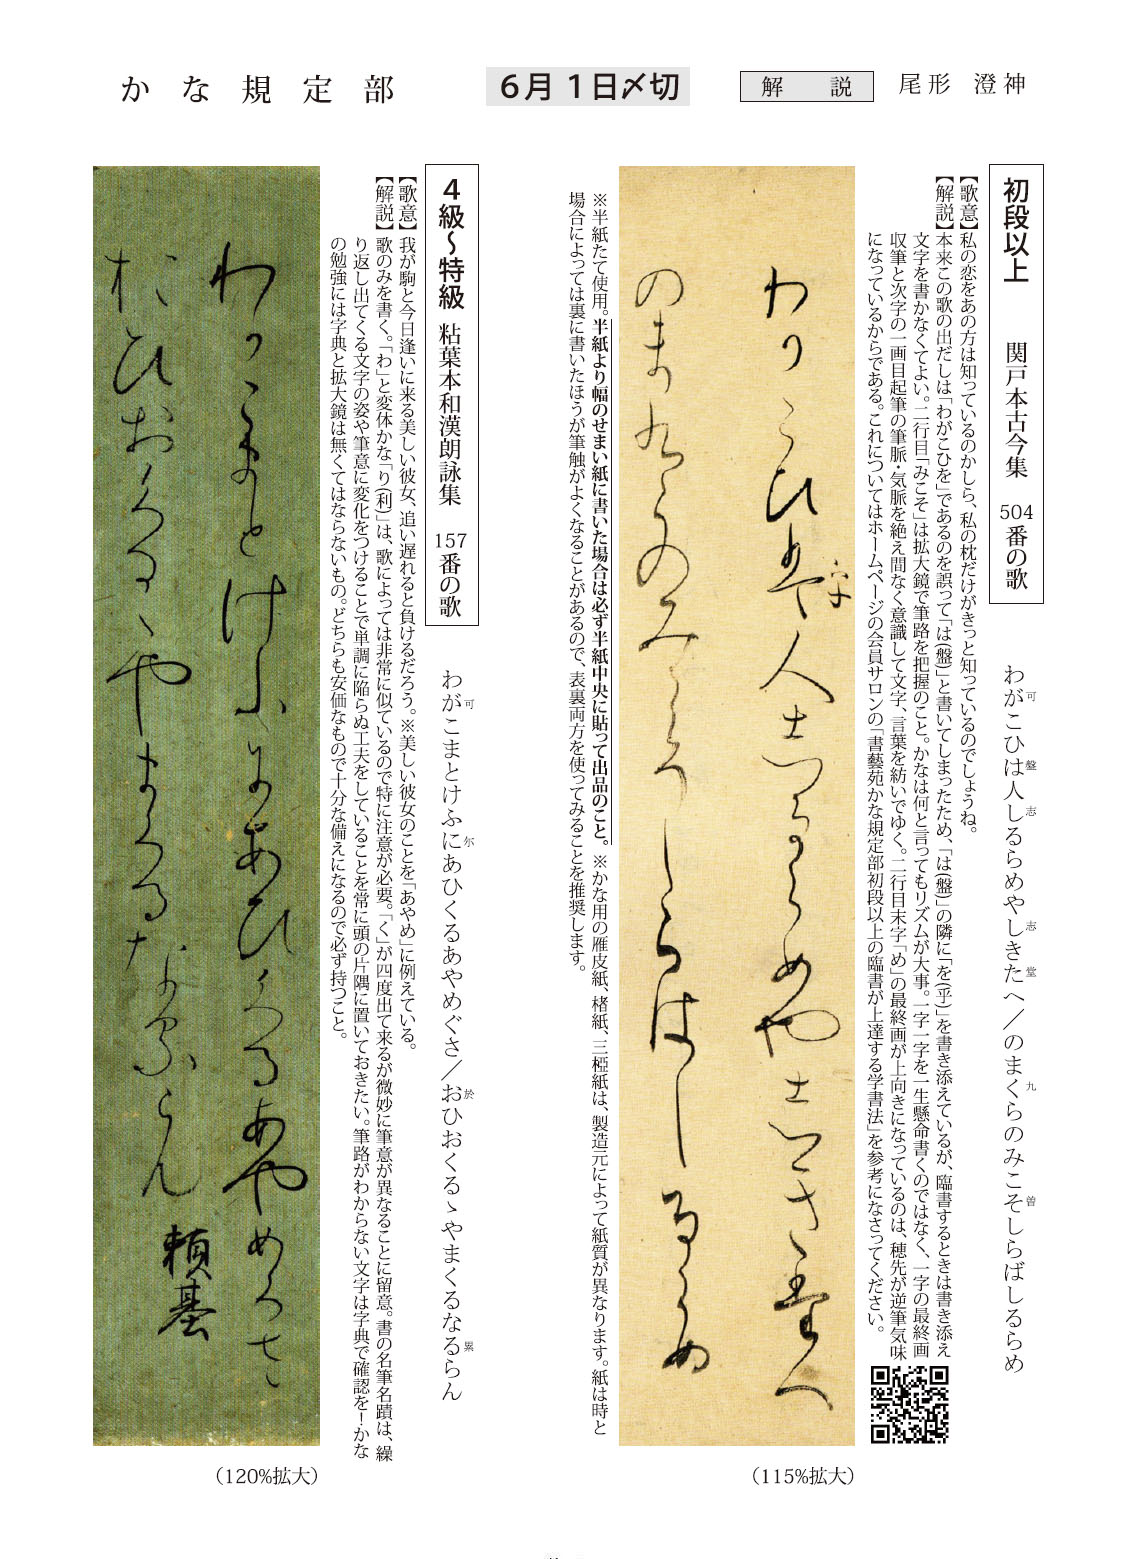 かな規定部
６月１日〆切
解　説
尾形　澄神
初段以上　関戸本古今集　504番の歌
わがこひは人しるらめやしきたへ／のまくらのみこそしらばしるらめ
可　盤　志　志　堂　九　曽
【歌意】私の恋をあの方は知っているのかしら、私の枕だけがきっと知っているのでしょうね。
【解説】本来この歌の出だしは「わがこひを」であるのを誤って「は（盤）」と書いてしまったため、「は（盤）」の隣に「を（乎）」を書き添えているが、臨書するときは書き添え
文字を書かなくてよい。二行目「みこそ」は拡大鏡で筆路を把握のこと。かなは何と言ってもリズムが大事。一字一字を一生懸命書くのではなく、一字の最終画
収筆と次字の一画目起筆の筆脈・気脈を絶え間なく意識して文字、言葉を紡いでゆく。二行目末字「め」の最終画が上向きになっているのは、穂先が逆筆気味
になっているからである。これについてはホームページの会員サロンの「書藝苑かな規定部初段以上の臨書が上達する学書法」を参考になさってください。
わかこひ盤人志るらめや志き堂へ
乎
のまくらのみこそしらはしるらめ
（115%拡大）
※半紙たて使用。半紙より幅のせまい紙に書いた場合は必ず半紙中央に貼って出品のこと。※かな用の雁皮紙、楮紙、三椏紙は、製造元によって紙質が異なります。紙は時と
場合によっては裏に書いたほうが筆触がよくなることがあるので、表裏両方を使ってみることを推奨します。
４級〜特級　粘葉本和漢朗詠集　157番の歌
わがこまとけふにあひくるあやめぐさ／おひおくるゝやまくるなるらん
可　尓　於　累
【歌意】我が駒と今日逢いに来る美しい彼女、追い遅れると負けるだろう。※美しい彼女のことを「あやめ」に例えている。
【解説】歌のみを書く。「わ」と変体かな「り（利）」は、歌によっては非常に似ているので特に注意が必要。「く」が四度出て来るが微妙に筆意が異なることに留意。書の名筆名蹟は、繰
り返し出てくる文字の姿や筆意に変化をつけることで単調に陥らぬ工夫をしていることを常に頭の片隅に置いておきたい。筆路がわからない文字は字典で確認を！かな
の勉強には字典と拡大鏡は無くてはならないもの。どちらも安価なもので十分な備えになるので必ず持つこと。
わかこまとけふにあひくるあやめくさ
おひおくるゝやまくるなるらん
頼基
（120%拡大）